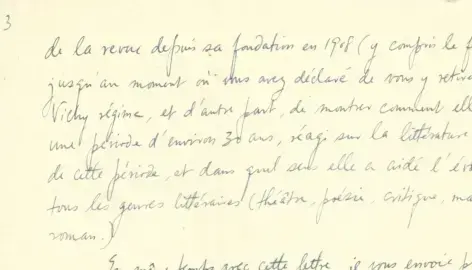 3
de la revue depuis sa fondation en 1908 (y compris le f
jusqu'au moment où vous avez déclaré de vous y retire
Vichy régime, et d'autre part, de montrer comment elle
une période d'environ 30 ans, réagi sur la littérature
de cette période, et dans quel sens elle a aidé l'évo
tous les genres littéraires (théâtre, poésie, critique, ma
roman.)
temps avec cette lettre, je vous envoie p